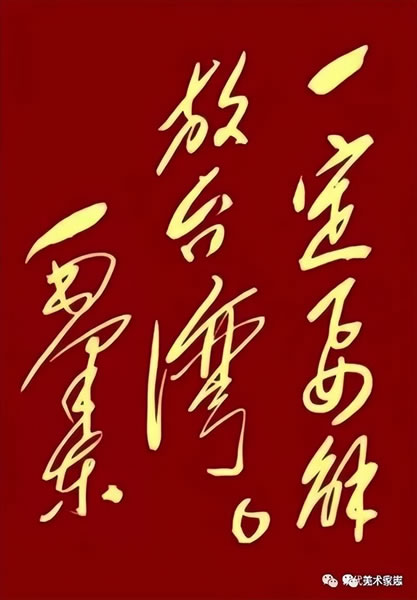 一定要解
放台湾。
毛泽东
代美术家